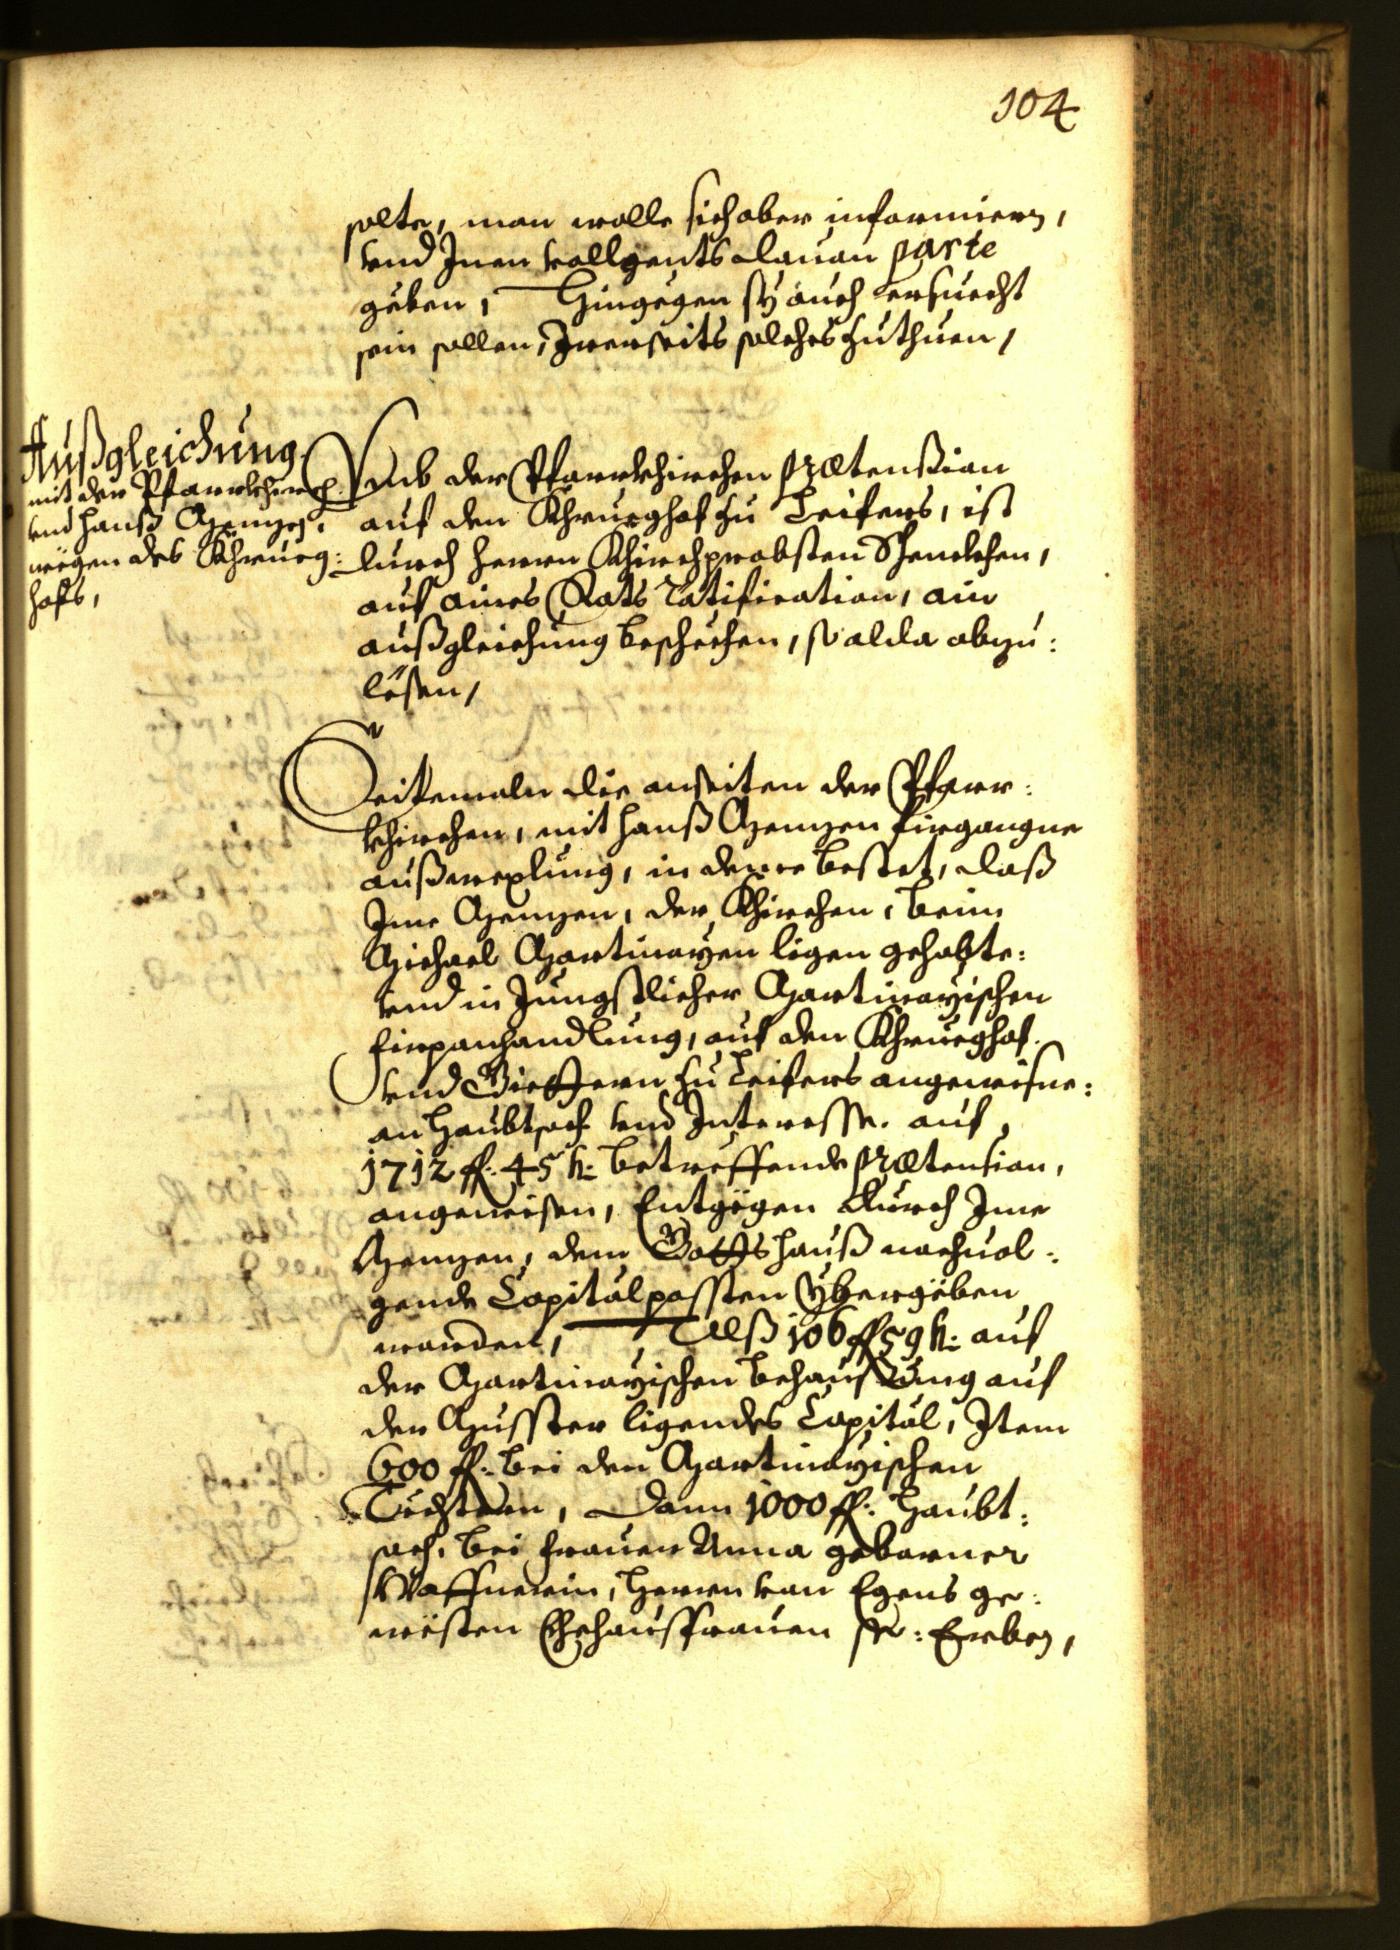 104
solte, man wolle sich aber informiern,
vnd Inen volgents dauon parte
geben, Hingegen sy auch ersuecht
sein sollen, Irerseits solches zuthuen,
Außgleichung
mit der Pfarrkhirch
vnd Hanß
wegen des Khrueg:
hofs,
Vmb der Pfarrkhirchen prætension
auf den Khrueghof zu Leifers, ist
durch Herrn Khirchprobsten Schenckhen,
auf aines Rats ratification, ain
außgleichung beschechen, so alda abzu:
lösen,
Seitemaln die anseiten der Pfarr:
khirchen, mit Hanß Menzen firgangne
außwexlung, in deme bestet, daß
Ime Menzen, der Khirchen, beim
Michael Martinayen ligen gehabte:
vnd in Jungstlicher Martinayischen
Firpanhandlung, auf den Khrueghof
vnd Giettern zu Leifers angewisne:
an Haubtsach vnd Interesse auf
1712 fl: 45 k: betreffende prætension,
angewisen, Entgegen durch Ime
Menzen, dem Gottshauß nachuol:
gende Capitalpossten ybergeben
worden, Alß 106 fl 59 k: auf
der Martinayischen behausung auf
der Musster ligendes Capital, Item
600 fl: bei den Martinayischen
Töchtern, Dann 1000 fl: Haubt:
sach, bei Frauen Anna geborner
Waffnerin, Herrn von Egens ge:
westen Ehehausfrauen se: Erben,